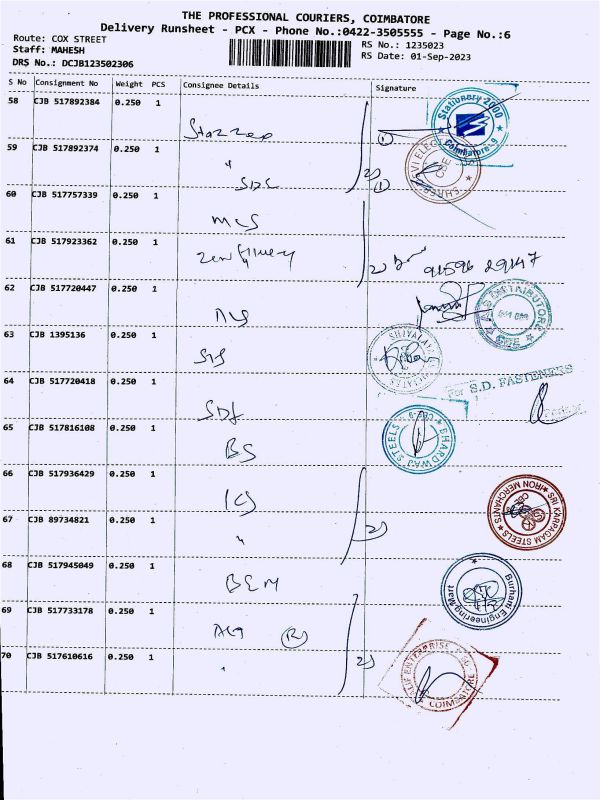 THE PROFESSIONAL COURIERS, COIMBATORE
Delivery Runsheet - PCX - Phone No.:0422-3505555 - Page No.:6
Route: COX STREET
Staff: MAHESH
DRS No.: DCJB123502306
RS No.: 1235023
RS Date: 01-Sep-2023
S No Consignment No Weight PCS Consignee Details Signature
58 CJB 517892384 0.250 1
Stationery 2000 Coimbatore-9
59 CJB 517892374 0.250 1
60 CJB 517757339 0.250 1
MCS
61 CJB 517923362 0.250 1
91596 29147
62 CJB 517720447 0.250 1
DISTRIBUTORS
63 CJB 1395136 0.250 1
64 CJB 517720418 0.250 1
For S.D. FASTENERS
65 CJB 517816108 0.250 1
BS
BHARDWAJ STEELS
66 CJB 517936429 0.250 1
SRI KARPAGAM STEELS IRON MERCHANTS
67 CJB 89734821 0.250 1
68 CJB 517945049 0.250 1
BEM
Burhani Engineering Mart
69 CJB 517733178 0.250 1
70 CJB 517610616 0.250 1
COIMBATORE